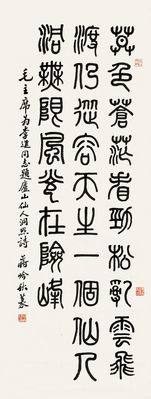 莫色蒼茫看勁松亂雲飛
渡仍從容天生一個仙人
洞無限風光在險峰
毛主席为李進同志題廬山仙人洞照詩 蔣吟秋篆